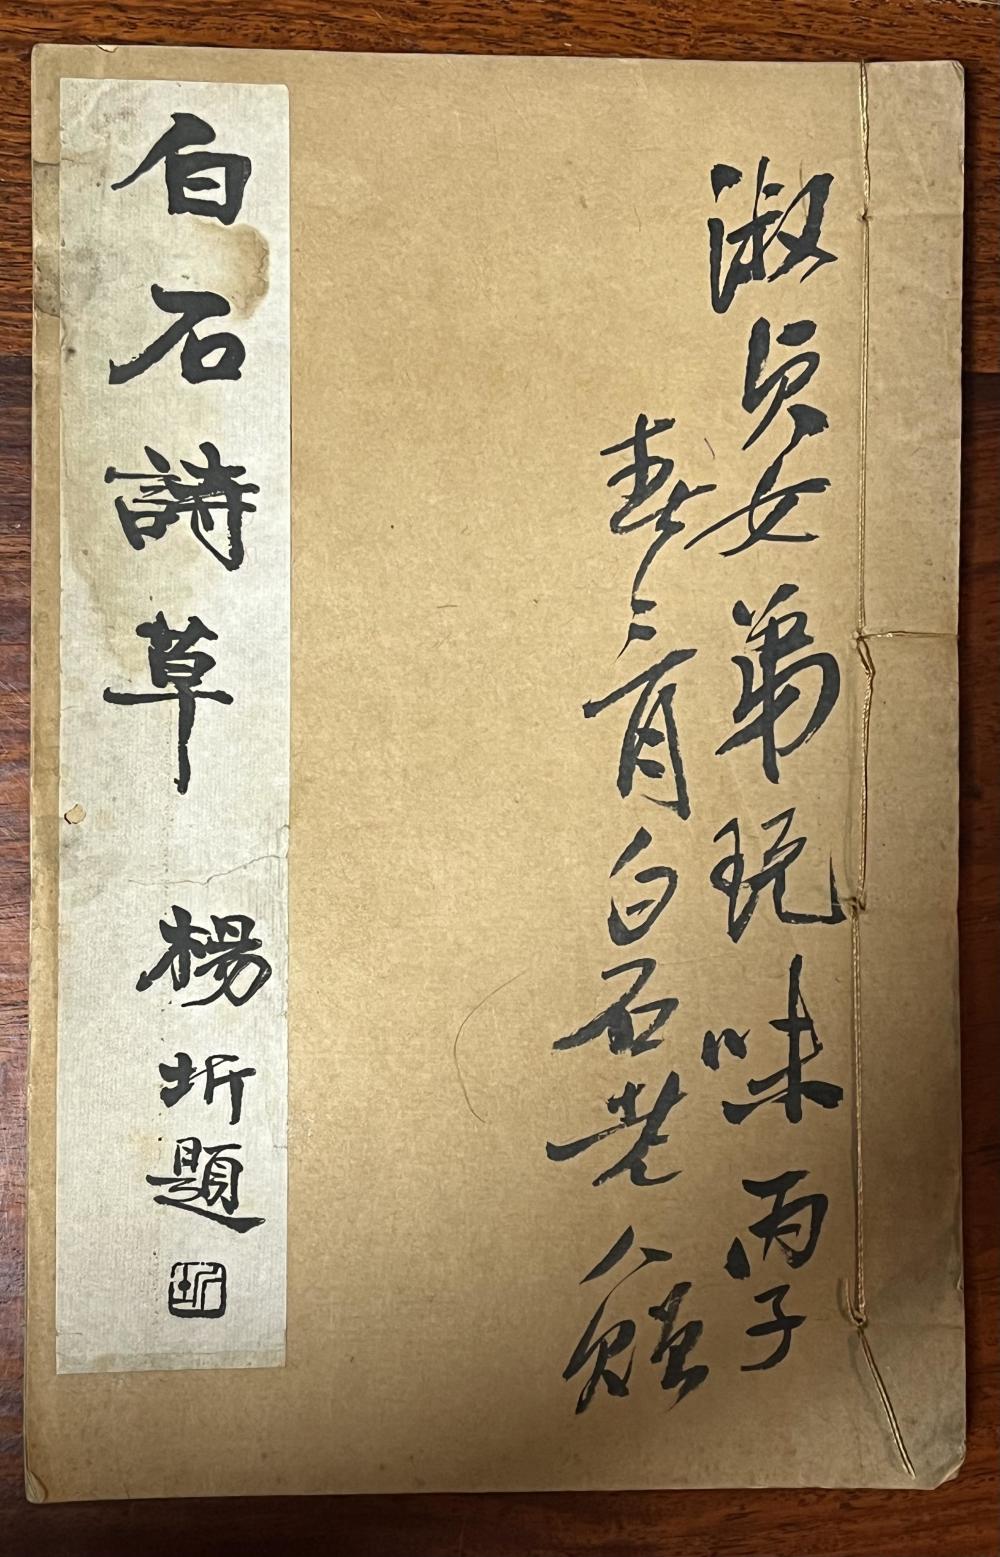 淑貞女弟玩味丙子
春三月白石老人贈
白石詩草
楊圻題
圻